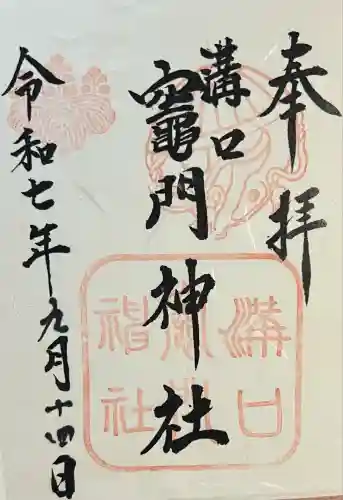 奉拝
溝口
竈門神社
令和七年九月十四日
溝口
神社